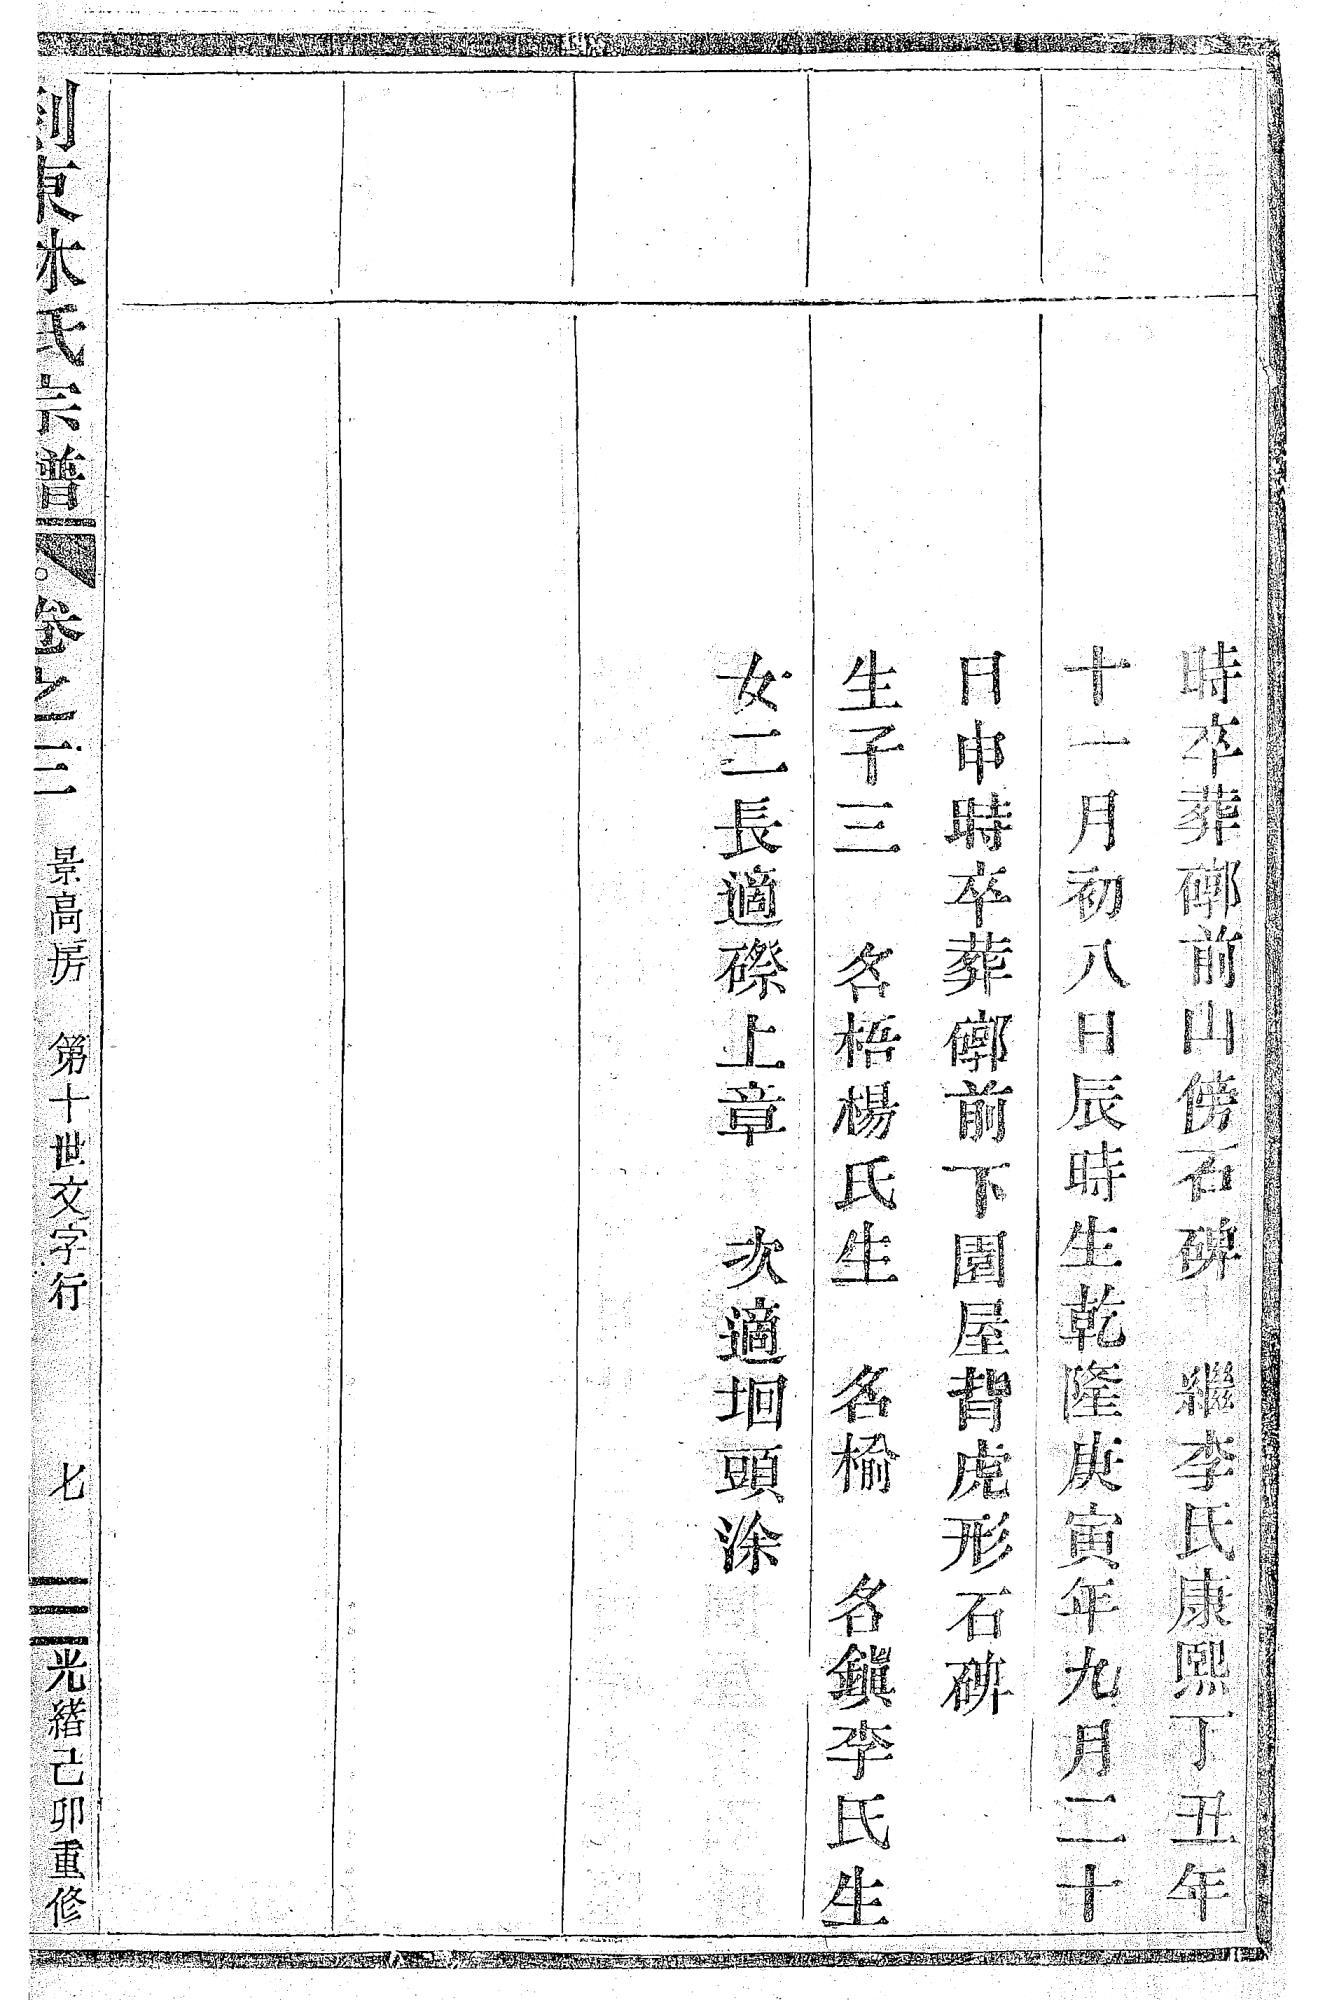 時卒葬鄉前山傍石碑　繼李氏康熙丁丑年
十一月初八日辰時生乾隆庚寅年九月二十
日申時卒葬鄉前下園屋背虎形石碑
生子三　名梧楊氏生　名榆　名鎮李氏生
女二長適磜上章　次適垇頭涂
東木氏宗譜
卷之三　景高房　第十世文字行　七　光緒己卯重修